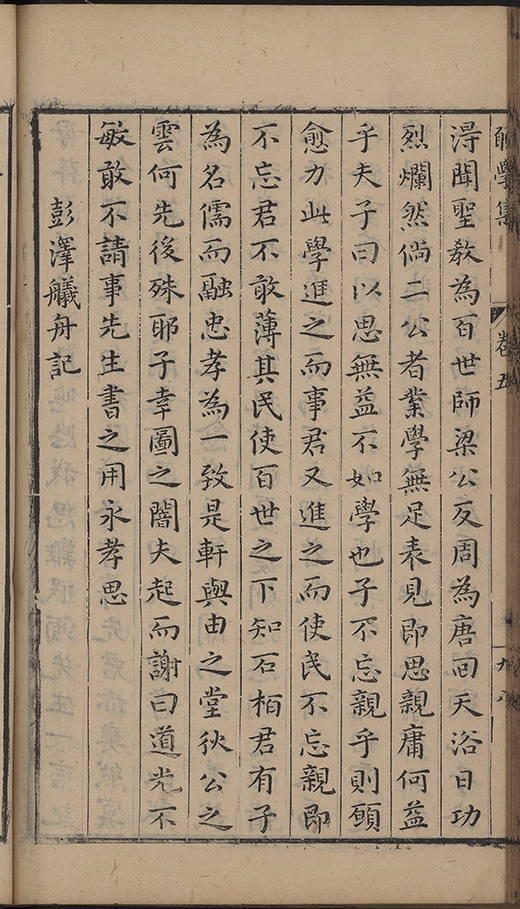 學集
卷五
九八
淂聞聖教為百世師梁公反周為唐囬天浴日功
烈爛然倘二公者業學無足表見即思親庸何益
乎夫子曰以思無益不如學也子不忘親乎則願
愈力此學進之而事君又進之而使民不忘親即
不忘君不敢薄其民使百世之下知石栢君有子
為名儒而融忠孝為一致是軒與由之堂狄公之
雲何先後殊耶子幸圖之闇夫起而謝曰道光不
敏敢不請事先生書之用永孝思
彭澤艤舟記